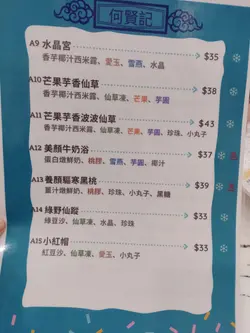 何賢記
A9 水晶宮 $35
香芋椰汁西米露、愛玉、雪燕、水晶
A10 芒果芋香仙草 $38
香芋椰汁西米露、仙草凍、芒果、芋圓
A11 芒果芋香波波仙草 $43
香芋椰汁西米露、仙草凍、芒果、芋圓、珍珠、小丸子
A12 美顏牛奶浴 $37
蛋白燉鮮奶、桃膠、雪燕、芋圓、椰汁
A13 養顏驅寒黑桃 $39
薑汁燉鮮奶、桃膠、珍珠、小丸子、黑糖
A14 綠野仙蹤 $33
綠豆沙、仙草凍、水晶、珍珠
A15 小紅帽 $33
紅豆沙、仙草凍、愛玉、小丸子